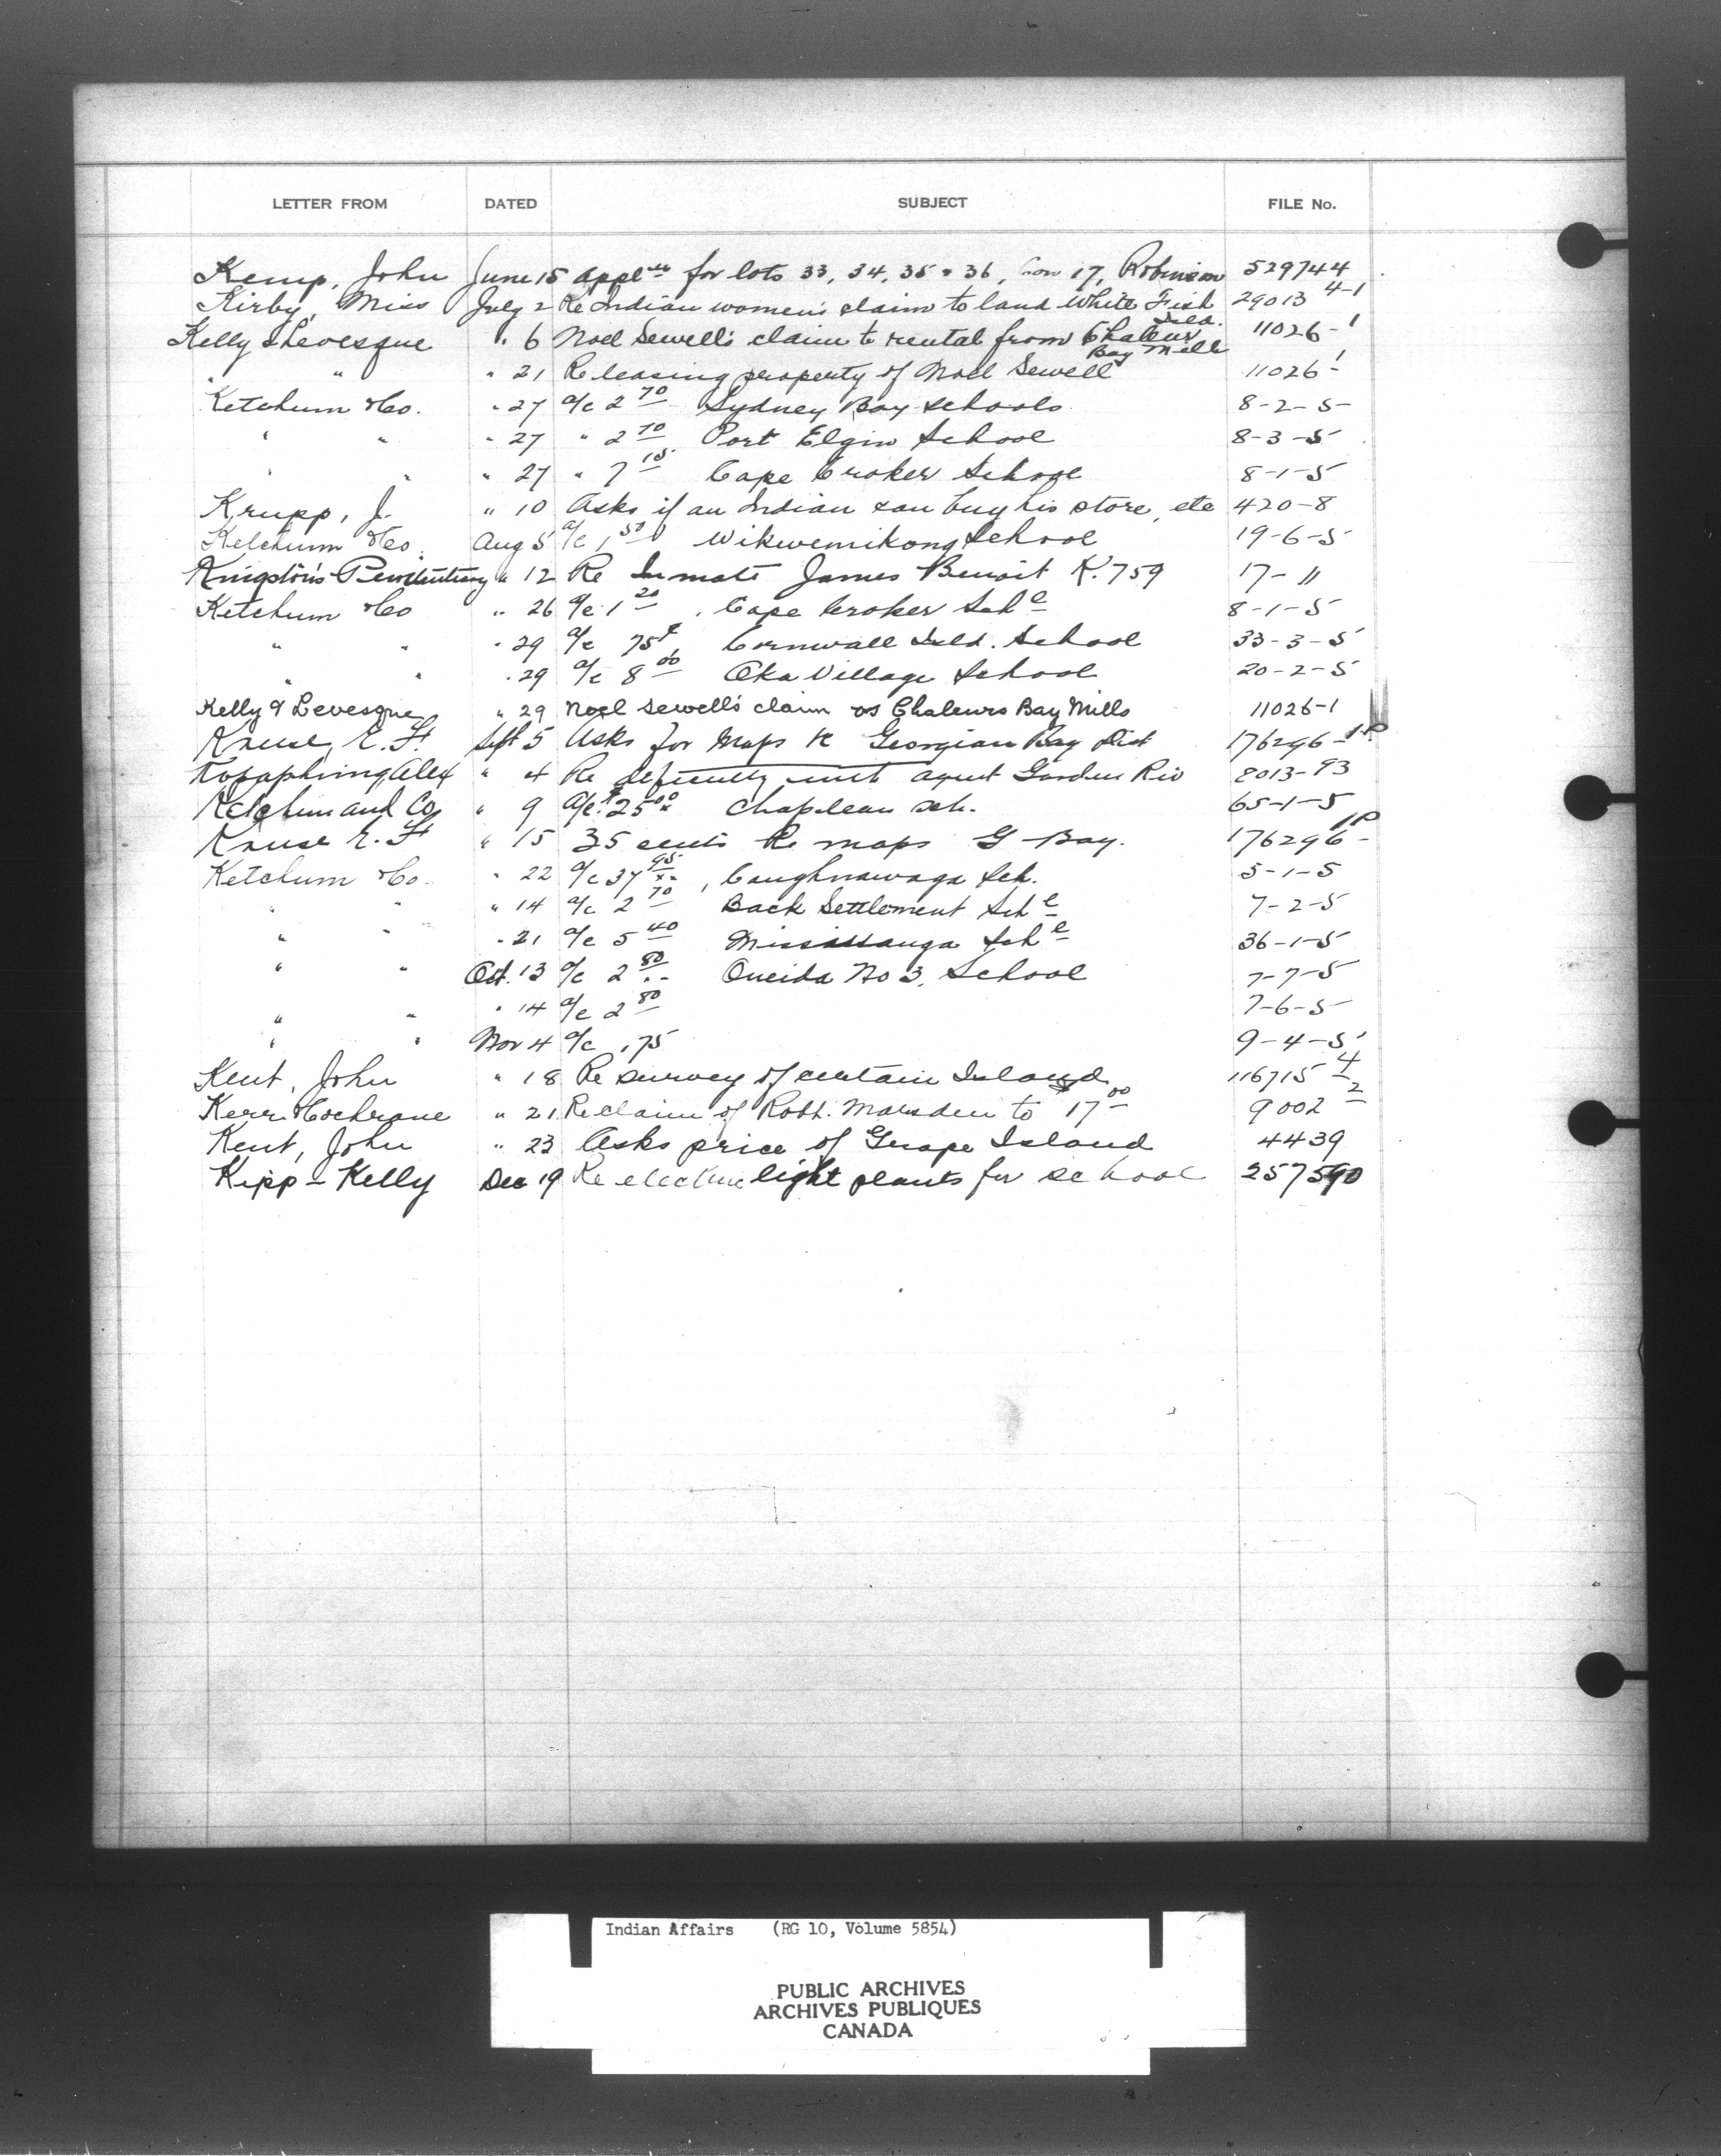 LETTER FROM DATED SUBJECT FILE No.
Kemp, John June 15 Applctn for lots 33, 34, 35 & 36, Con 17, Robinson 529744
Kirby, Miss July 2 Re Indian women's claim to land White Fish Isld. 29013 4-1
Kelly & Levesque " 6 Noel Sewell's claim to rental from Chaleur Bay Mills 11026-1
" " " 21 Re leasing property of Noel Sewell 11026-1
Ketchum & Co. " 27 a/c 2 70 Sydney Bay schools 8-2-5
" " " 27 " 2 70 Port Elgin School 8-3-5
" " " 27 " 7 15 Cape Croker School 8-1-5
Krupp, J. " 10 Asks if an Indian can buy his store, etc 420-8
Ketchum & Co. Aug 5 a/c 1 50 Wikwemikong School 19-6-5
Kingston's Penitentiary " 12 Re Inmate James Benoit K. 759 17-11
Ketchum & Co " 26 a/c 1 20 , Cape Croker Schl 8-1-5
" " " 29 a/c 75¢, Cornwall Isld. School 33-3-5
" " " 29 a/c 8 00 Oka Village School 20-2-5
Kelly & Levesque " 29 Noel Sewell's claim vs Chaleurs Bay Mills 11026-1
Kruse, E. F. Sept 5 Asks for Maps re Georgian Bay Dist 176296-1P
Alex " 4 Re difficulty with agent Garden Riv 8013-93
Ketchum and Co " 9 a/c. $25 00 Chapleau sch. 65-1-5
Kruse E. F " 15 35 cents Re maps G Bay. 176296-1P
Ketchum & Co. " 22 a/c 37 95, Caughnawaga Sch. 5-1-5
" " " 14 a/c 2 70 Back Settlement Schl 7-2-5
" " " 21 a/c 5 40 Mississauga Schl 36-1-5
" " Oct. 13 a/c 2 80 Oneida No 3, School 7-7-5
" " " 14 a/c 2 80 7-6-5
" " Nov 4 a/c .75 9-4-5
Kent, John " 18 Re survey of certain Island 116715-4
Kerr & Cochrane " 21 Re claim of Robt. Marsden to $17 00 9002-2
Kent, John " 23 Asks price of Grape Island 4439
Kipp-Kelly Dec 19 Re electric light plants for school 257590
Indian Affairs (RG 10, Volume 5854)
PUBLIC ARCHIVES
ARCHIVES PUBLIQUES
CANADA